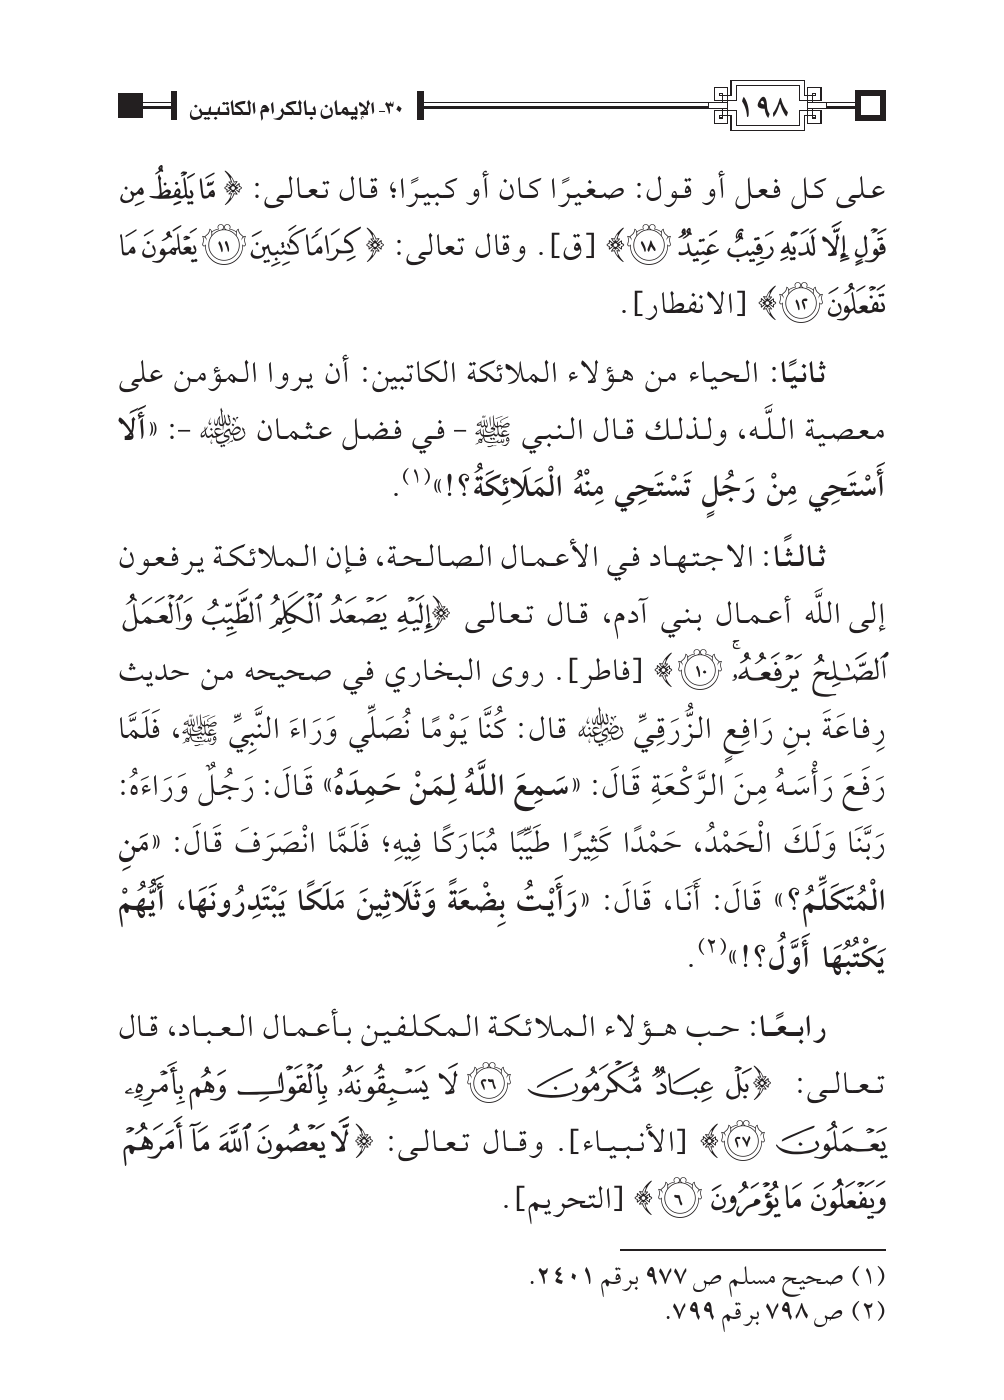 ١٩٨
٣٠- الإيمان بالكرام الكاتبين
على كل فعل أو قول: صغيرًا كان أو كبيرًا؛ قال تعالى: ﴿ مَّا يَلْفِظُ مِن
قَوْلٍ إِلَّا لَدَيْهِ رَقِيبٌ عَتِيدٌ ١٨ ﴾ [ق]. وقال تعالى: ﴿ كِرَامًا كَٰتِبِينَ ١١ يَعْلَمُونَ مَا
تَفْعَلُونَ ١٢ ﴾ [الانفطار].
ثانيًا: الحياء من هؤلاء الملائكة الكاتبين: أن يروا المؤمن على
معصية اللَّه، ولذلك قال النبي ﷺ - في فضل عثمان رضي الله عنه -: «أَلَا
أَسْتَحِي مِنْ رَجُلٍ تَسْتَحِي مِنْهُ الْمَلَائِكَةُ؟!»(١).
ثالثًا: الاجتهاد في الأعمال الصالحة، فإن الملائكة يرفعون
إلى اللَّه أعمال بني آدم، قال تعالى ﴿إِلَيْهِ يَصْعَدُ ٱلْكَلِمُ ٱلطَّيِّبُ وَٱلْعَمَلُ
ٱلصَّٰلِحُ يَرْفَعُهُۥۚ ١٠ ﴾ [فاطر]. روى البخاري في صحيحه من حديث
رِفاعَةَ بنِ رَافِعٍ الزُّرَقِيِّ رضي الله عنه قال: كُنَّا يَوْمًا نُصَلِّي وَرَاءَ النَّبِيِّ ﷺ، فَلَمَّا
رَفَعَ رَأْسَهُ مِنَ الرَّكْعَةِ قَالَ: «سَمِعَ اللَّهُ لِمَنْ حَمِدَهُ» قَالَ: رَجُلٌ وَرَاءَهُ:
رَبَّنَا وَلَكَ الْحَمْدُ، حَمْدًا كَثِيرًا طَيِّبًا مُبَارَكًا فِيهِ؛ فَلَمَّا انْصَرَفَ قَالَ: «مَنِ
الْمُتَكَلِّمُ؟» قَالَ: أَنَا، قَالَ: «رَأَيْتُ بِضْعَةً وَثَلَاثِينَ مَلَكًا يَبْتَدِرُونَهَا، أَيُّهُمْ
يَكْتُبُهَا أَوَّلُ؟!»(٢).
رابعًا: حب هؤلاء الملائكة المكلفين بأعمال العباد، قال
تعالى: ﴿بَلْ عِبَادٌ مُّكْرَمُونَ ٢٦ لَا يَسْبِقُونَهُۥ بِٱلْقَوْلِ وَهُم بِأَمْرِهِۦ
يَعْمَلُونَ ٢٧﴾ [الأنبياء]. وقال تعالى: ﴿لَّا يَعْصُونَ ٱللَّهَ مَآ أَمَرَهُمْ
وَيَفْعَلُونَ مَا يُؤْمَرُونَ ٦ ﴾ [التحريم].
(١) صحيح مسلم ص ٩٧٧ برقم ٢٤٠١.
(٢) ص ٧٩٨ برقم ٧٩٩.